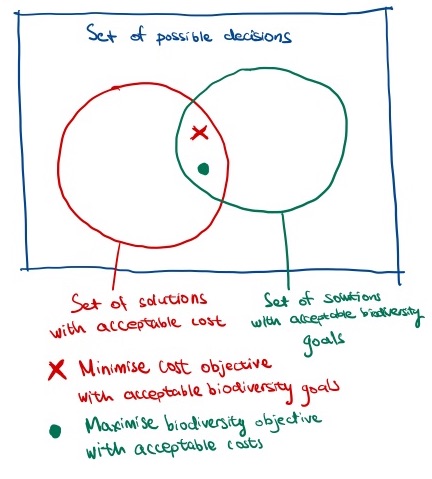 Set of possible decisions
Set of solutions
with acceptable cost
Set of solutions
with acceptable biodiversity
goals
Minimise cost objective
with acceptable biodiversity goals
Maximise biodiversity objective
with acceptable costs